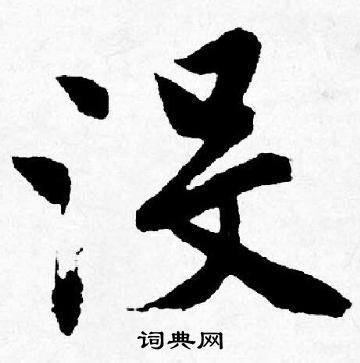 没
词典网